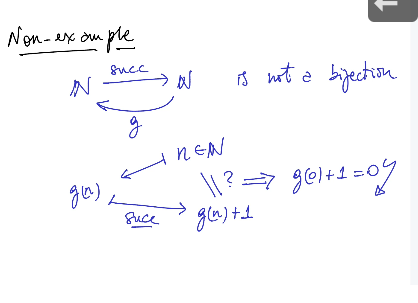 Non-example
succ
ℕ → ℕ is not a bijection
g
n ∈ ℕ
g(n) ||? ⟹ g(0)+1=0 ↯
succ g(n)+1